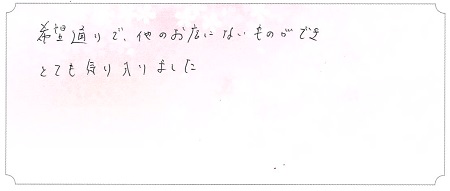 希望通りで、他のお店にないものができ
とても気に入りました